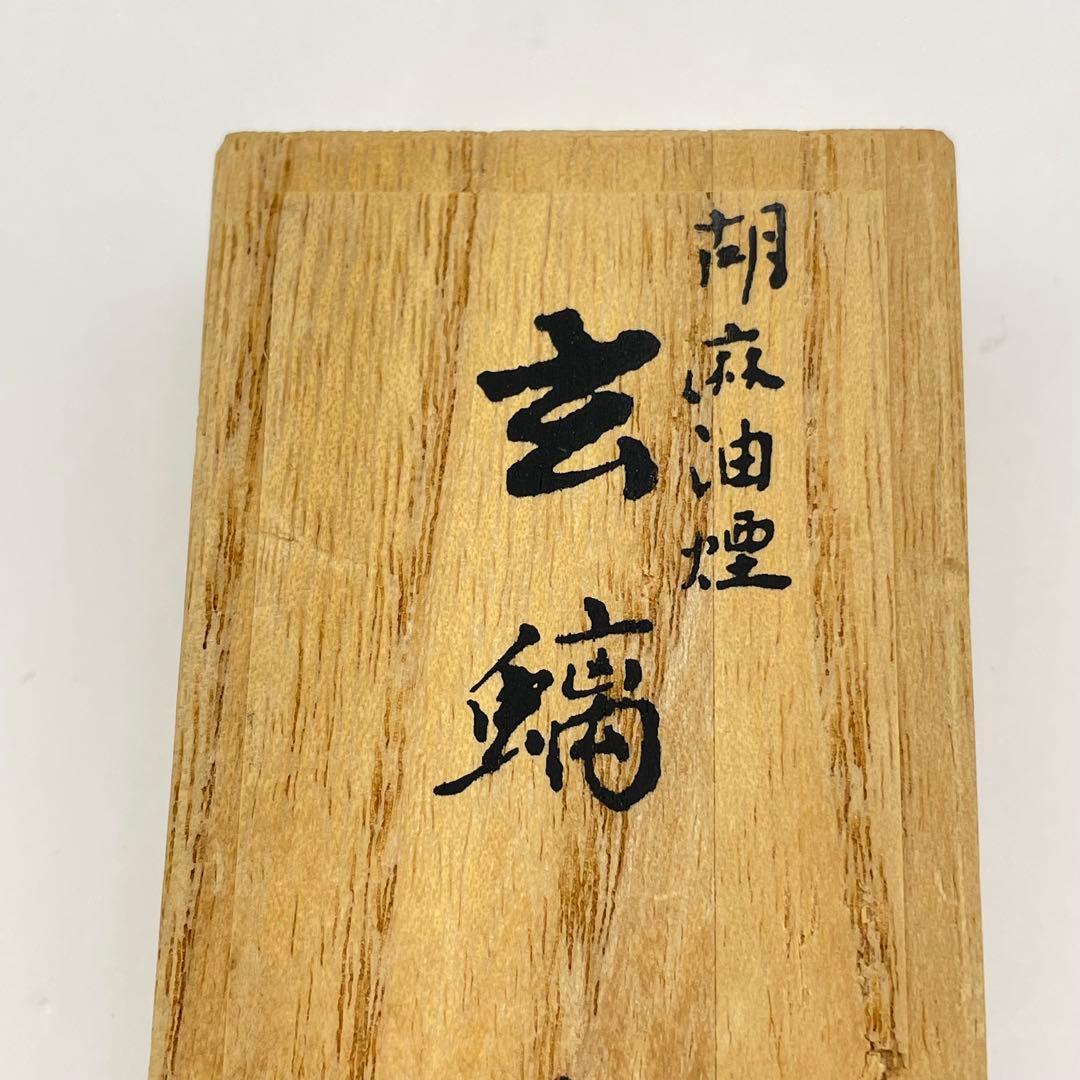 胡麻油煙
玄螭